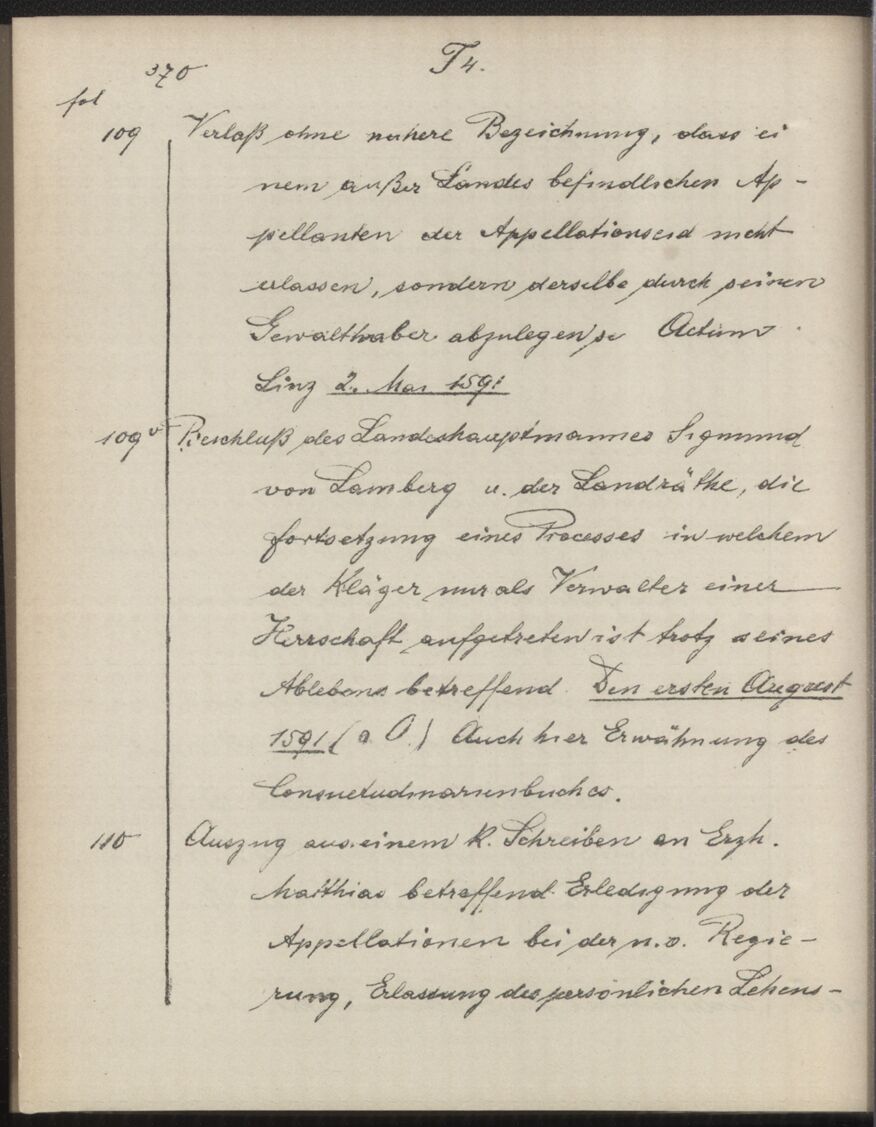 370 T4.
fol
109 Verlaß ohne nähere Bezeichnung, dass ei
nem außer Landes befindlichen Ap-
pellanten der Appellationseid nicht
erlassen, sondern derselbe durch seinen
Gewalthaber abzulegen se Actum
Linz 2. Mai 1591
109v Beschluß des Landeshauptmannes Sigmund
von Lamberg u. der Landräthe, die
Fortsetzung eines Processes in welchem
der Kläger nur als Verwalter einer
Herrschaft aufgetreten ist trotz seines
Ablebens betreffend. Den ersten August
1591 (a O.) Auch hier Erwähnung des
Consuetudinarienbuches.
110 Auszug aus einem k. Schreiben an Erzh.
Matthias betreffend Erledigung der
Appellationen bei der n.o. Regie-
rung, Erlassung des persönlichen Lehens-